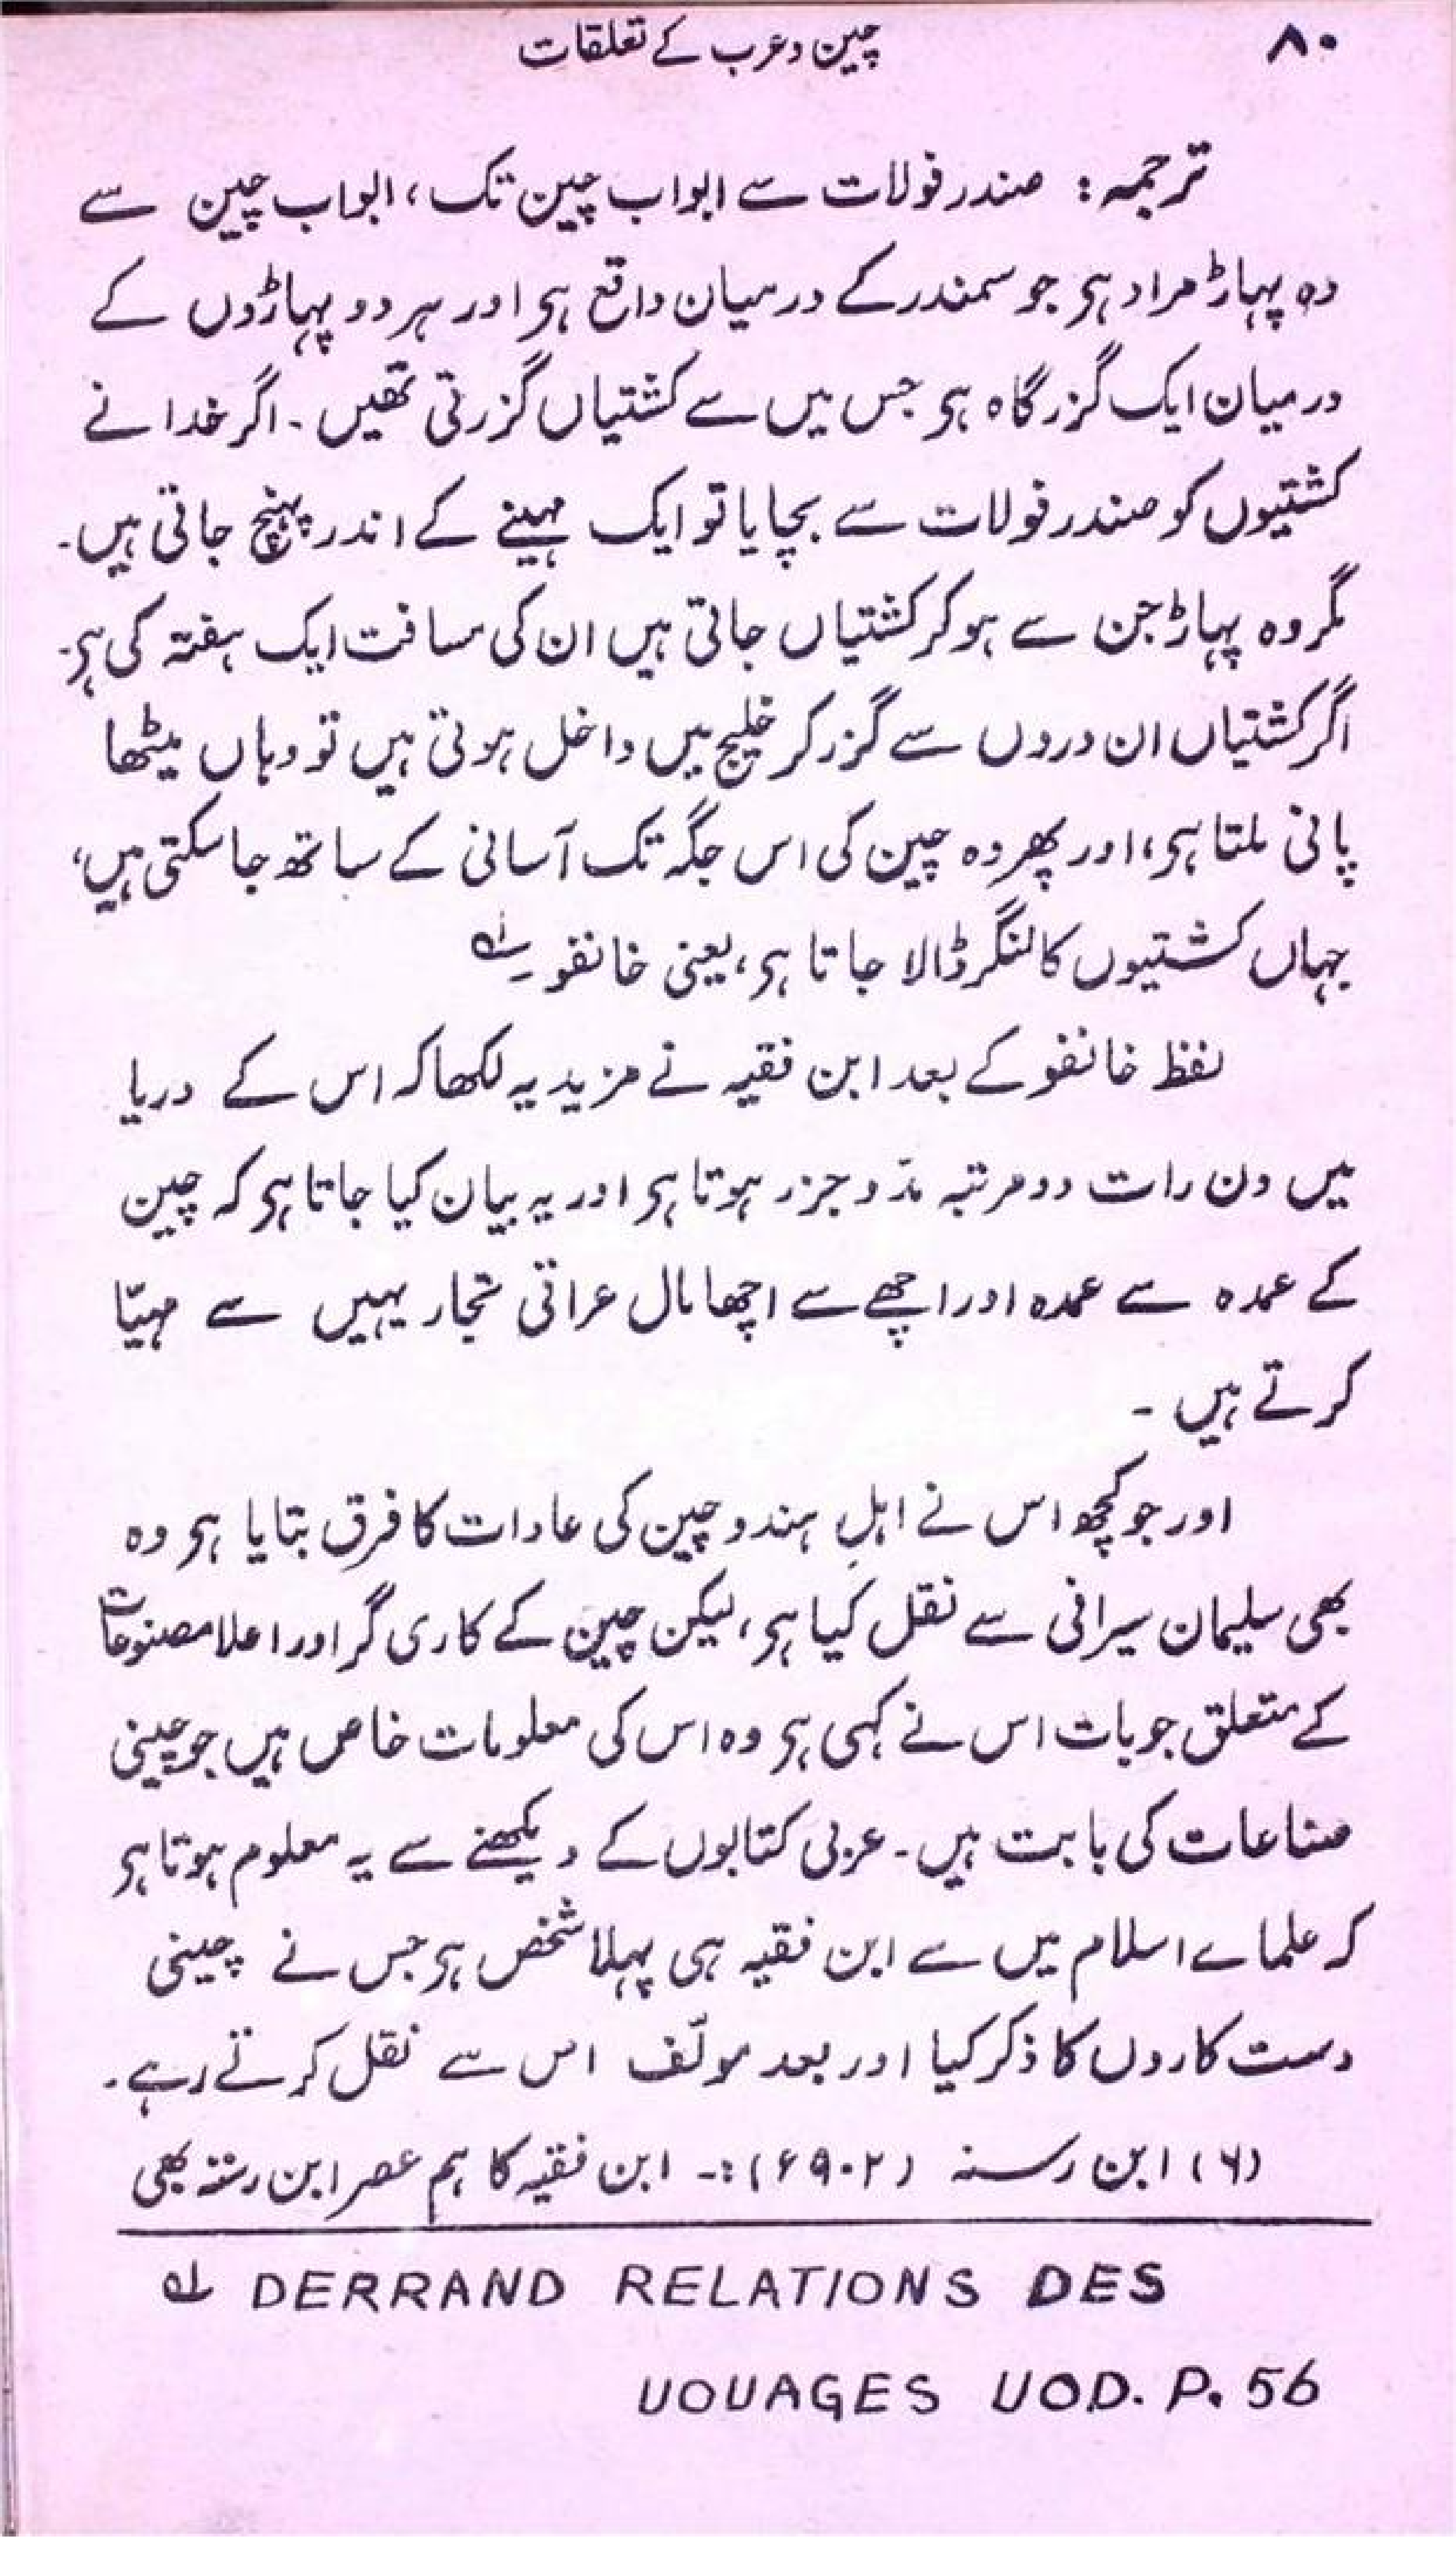 ۸۰ چین و عرب کے تعلقات
ترجمہ: صندر فولات سے ابواب چین تک، ابواب چین سے
وہ پہاڑ مراد ہی جو سمندر کے درمیان واقع ہی اور ہر دو پہاڑوں کے
درمیان ایک گزر گاہ ہی جس میں سے کشتیاں گزرتی تھیں۔ اگر خدا نے
کشتیوں کو صندر فولات سے بچایا تو ایک مہینے کے اندر پہنچ جاتی ہیں۔
مگر وہ پہاڑ جن سے ہو کر کشتیاں جاتی ہیں ان کی مسافت ایک ہفتہ کی ہی۔
اگر کشتیاں ان دروں سے گزر کر خلیج میں داخل ہوتی ہیں تو وہاں میٹھا
پانی ملتا ہی، اور پھر وہ چین کی اس جگہ تک آسانی کے ساتھ جا سکتی ہیں،
جہاں کشتیوں کا لنگر ڈالا جاتا ہی، یعنی خانفو۔ لہ
لفظ خانفو کے بعد ابن فقیہ نے مزید یہ لکھا کہ اس کے دریا
میں دن رات دو مرتبہ مدّ و جزر ہوتا ہی اور یہ بیان کیا جاتا ہی کہ چین
کے عمدہ سے عمدہ اور اچھے سے اچھا مال عراقی تجار یہیں سے مہیّا
کرتے ہیں ۔
اور جو کچھ اس نے اہلِ ہند و چین کی عادات کا فرق بتایا ہی وہ
بھی سلیمان سیرافی سے نقل کیا ہی، لیکن چین کے کاری گر اور اعلا مصنوعات
کے متعلق جو بات اس نے کہی ہی وہ اس کی معلومات خاص ہیں جو چینی
صناعات کی بابت ہیں۔ عربی کتابوں کے دیکھنے سے یہ معلوم ہوتا ہی
کہ علماے اسلام میں سے ابن فقیہ ہی پہلا شخص ہی جس نے چینی
دست کاروں کا ذکر کیا اور بعد مولّف اس سے نقل کرتے رہے۔
(۶) ابن رستہ (۹۰۲ء):۔ ابن فقیہ کا ہم عصر ابن رستہ بھی
لہ DERRAND RELATIONS DES
UOUAGES UOD. P. 56